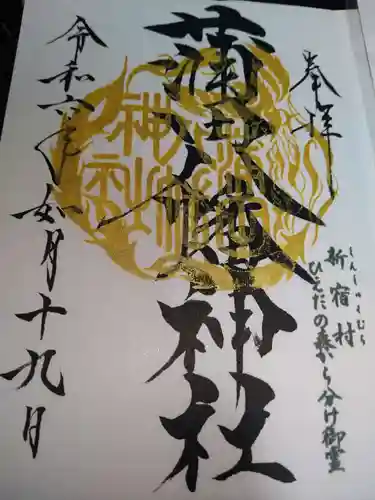 奉拝
しんしゅくむら
新宿村
ひとたの森から分け御霊
蒲八幡神社
令和六年如月十九日